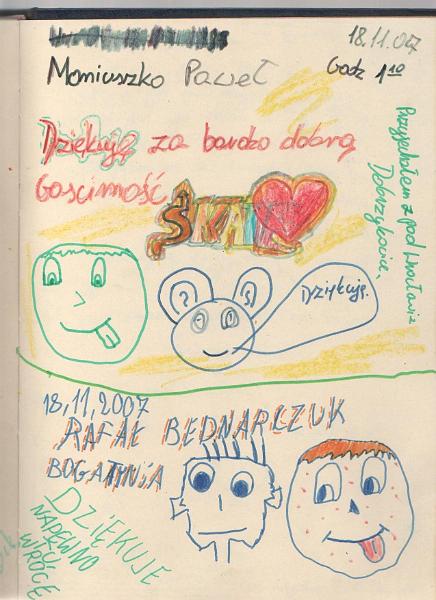 18.11.07
Moniuszko Paweł
Godz 1¹⁰
Dziękuję za bardzo dobrą
Gościnność
Przyjechałem z pod Wrocławia
Dobrzykowice.
Dziękuję.
18,11,2007
RAFAŁ BEDNARCZUK
BOGATYNIA
DZIĘKUJE
NAPEWNO
TU
WRÓCĘ